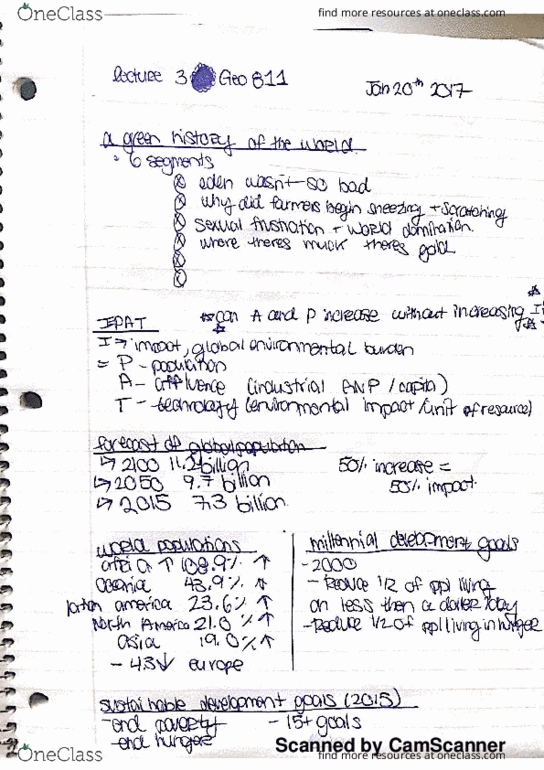 OneClass
find more resources at oneclass.com
lecture 3 Geo 811
Jan 20th 2017
a green history of the world
6 segments
eden wasn't so bad
why did farmers begin sneezing + scratching
sexual frustration + world domination
where theres muck theres gold
IPAT
can A and P increase without increasing I
I → impact, global environmental burden
= P - population
A - affluence (industrial GNP / capita)
T - technology (environmental impact /unit of resource)
forecast of global population
↳ 2100 11.2 billion
↳ 2050 9.7 billion
↳ 2015 7.3 billion
50% increase =
50% impact
world populations
africa ↑ 108.9% ↑
Oceania 43.9% ↑
latin america 23.6% ↑
North America 21.0% ↑
asia 19.0% ↑
- 4.3 ↓ europe
millennial development goals
- 2000
- Reduce 1/2 of ppl living
on less then a dollar today
- Reduce 1/2 of ppl living in hunger
sustainable development goals (2015)
- end poverty
- end hunger
- 15+ goals
Scanned by CamScanner
OneClass
find more resources at oneclass.com